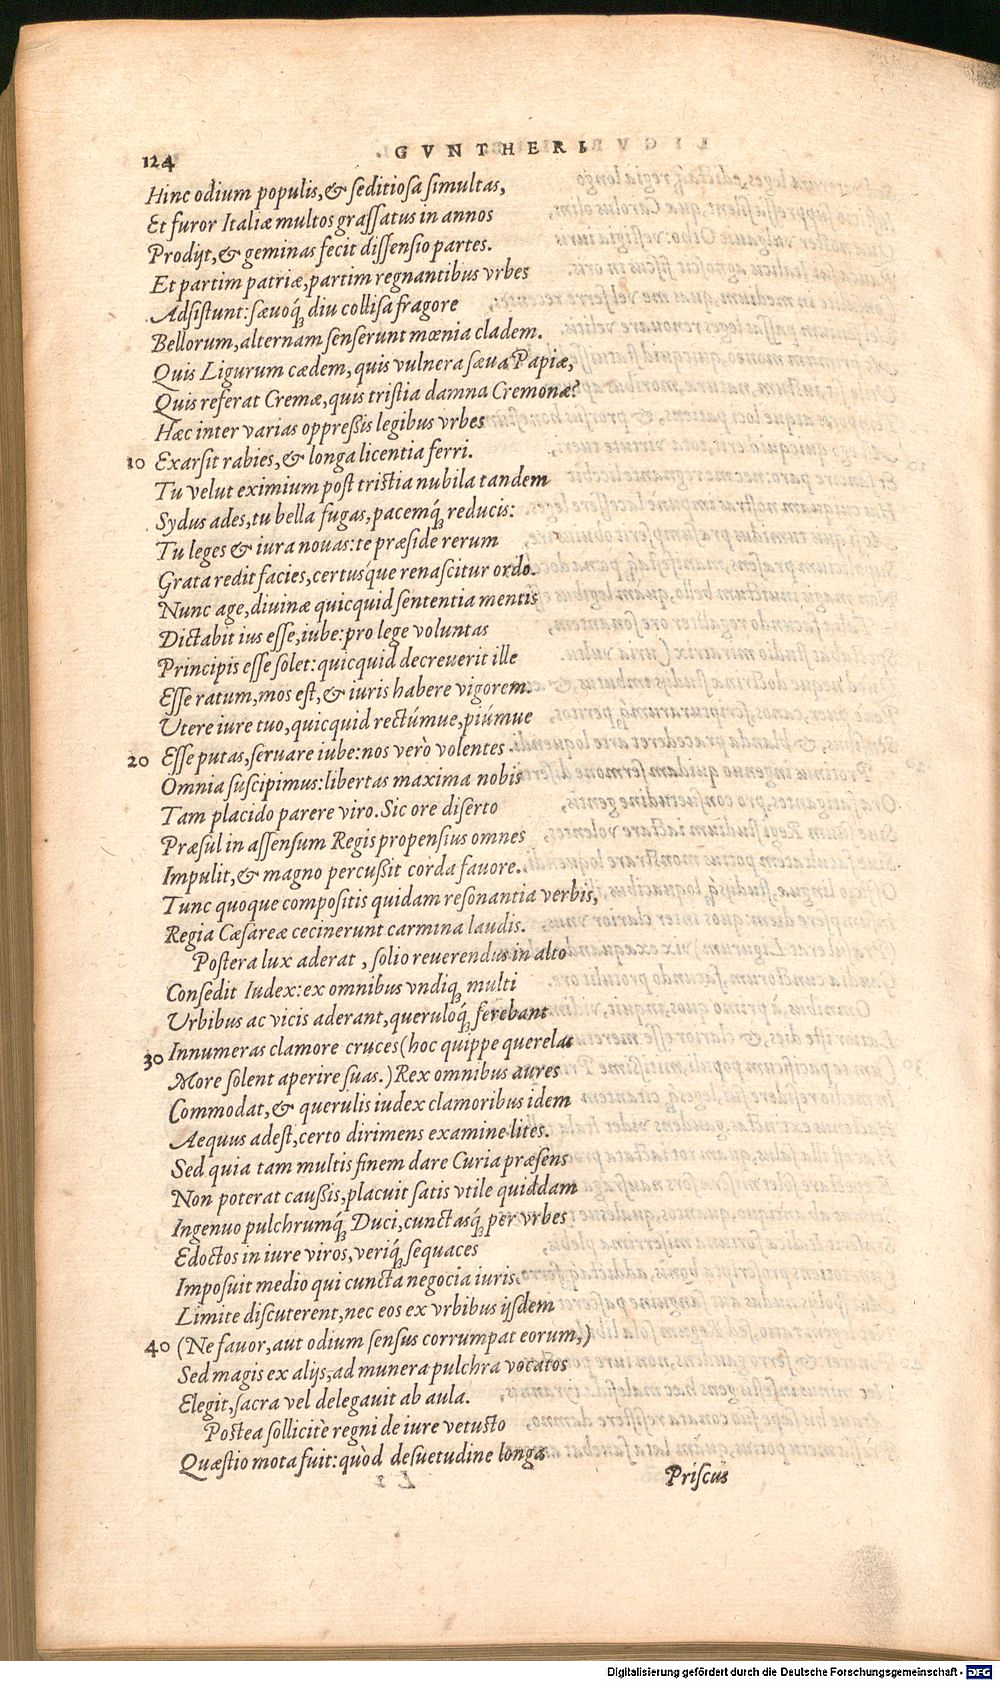 124
GVNTHERI
Hinc odium populis, & seditiosa simultas,
Et furor Italiæ multos grassatus in annos
Prodijt, & geminas fecit dissensio partes.
Et partim patriæ, partim regnantibus vrbes
Adsistunt: sæuoq́; diu collisa fragore
Bellorum, alternam senserunt mœnia cladem.
Quis Ligurum cædem, quis vulnera sæua Papiæ,
Quis referat Cremæ, quis tristia damna Cremonæ?
Hæc inter varias oppressis legibus vrbes
10 Exarsit rabies, & longa licentia ferri.
Tu velut eximium post tristia nubila tandem
Sydus ades, tu bella fugas, pacemq́; reducis:
Tu leges & iura nouas: te præside rerum
Grata redit facies, certusq́ue renascitur ordo.
Nunc age, diuinæ quicquid sententia mentis
Dictabit ius esse, iube: pro lege voluntas
Principis esse solet: quicquid decreuerit ille
Esse ratum, mos est, & iuris habere vigorem.
Vtere iure tuo, quicquid rectúmue, piúmue
20 Esse putas, seruare iube: nos verò volentes
Omnia suscipimus: libertas maxima nobis
Tam placido parere viro. Sic ore diserto
Præsul in assensum Regis propensius omnes
Impulit, & magno percussit corda fauore.
Tunc quoque compositis quidam resonantia verbis,
Regia Cæsareæ cecinerunt carmina laudis.
Postera lux aderat, solio reuerendus in alto
Consedit Iudex: ex omnibus vndiq; multi
Vrbibus ac vicis aderant, queruloq́; ferebant
30 Innumeras clamore cruces (hoc quippe querelas
More solent aperire suas.) Rex omnibus aures
Commodat, & querulis iudex clamoribus idem
Aequus adest, certo dirimens examine lites.
Sed quia tam multis finem dare Curia præsens
Non poterat caussis, placuit satis vtile quiddam
Ingenuo pulchrumq́; Duci, cunctasq́; per vrbes
Edoctos in iure viros, veriq́; sequaces
Imposuit medio qui cuncta negocia iuris
Limite discuterent, nec eos ex vrbibus ijsdem
40 (Ne fauor, aut odium sensus corrumpat eorum,)
Sed magis ex alijs, ad munera pulchra vocatos
Elegit, sacra vel delegauit ab aula.
Postea sollicitè regni de iure vetusto
Quæstio mota fuit: quòd desuetudine longa
Priscus
Digitalisierung gefördert durch die Deutsche Forschungsgemeinschaft - DFG